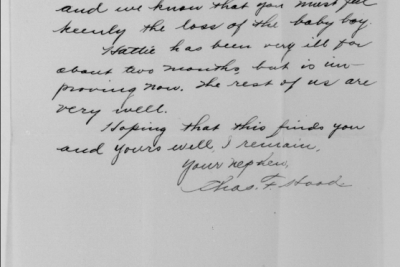 and we know that you must feel
keenly the loss of the baby boy.
Hattie has been very ill for
about two months but is im-
proving now. The rest of us are
very well.
Hoping that this finds you
and yours well, I remain,
Your nephew,
Chas. F. Hood